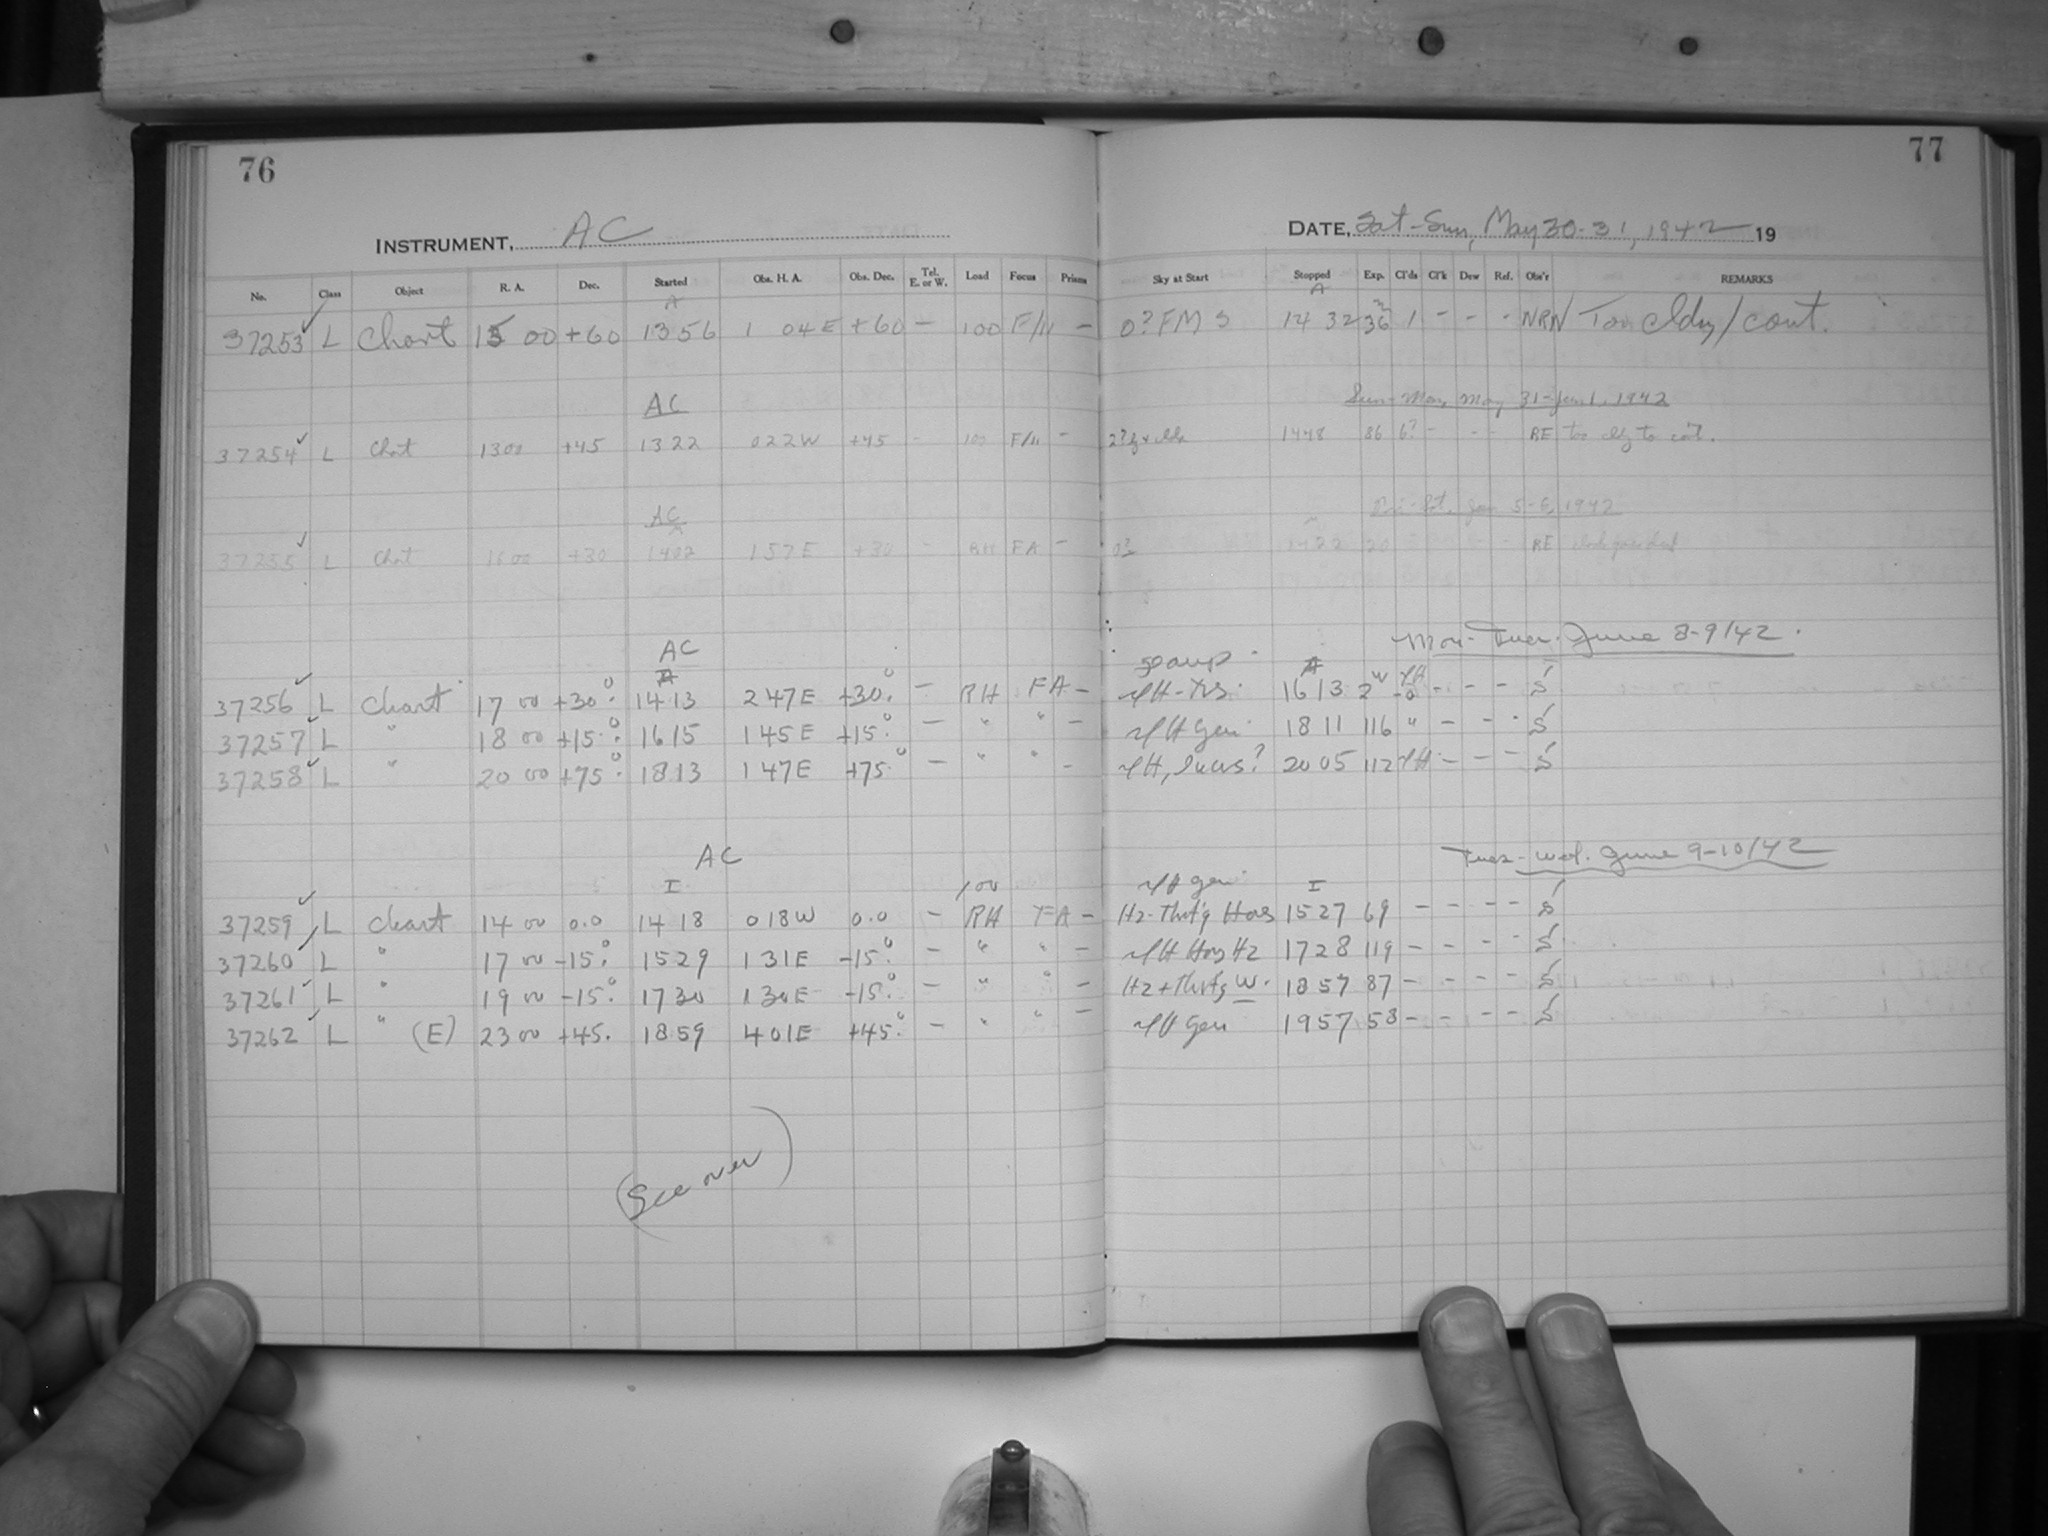 76
77
INSTRUMENT, AC
DATE, Sat-Sun, May 30-31, 1942 19
No. Class Object R. A. Dec. Started Obs. H. A. Obs. Dec. Tel. E. or W. Load Focus Prisms Sky at Start Stopped Exp. Cl'ds Cl'k Dew Ref. Obs'r REMARKS
A A m
37253 ✓ L Chart 15 00 +60 1356 1 04E +60 – 100 F/11 – 0? FM S 14 32 36 1 – – - NRN Too cldy/cont.
AC Sun-Mon, May 31-Jun 1, 1942
37254 ✓ L Chart 1300 +45 1322 022W +45 - 100 F/11 – 1448 86 6? – - - RE too cldy to cont.
AC Jun 5-6, 1942
A
37255 ✓ L Chart 1600 +30 1402 157E +30 - RH FA – 0? 1422 20 RE
AC Mon-Tues. June 8-9/42.
A A
37256 ✓ L Chart 17 00 +30° 1413 247E +30° – RH FA – 1613 2 – – – S
37257 ✓ L " 18 00 +15° 1615 145E +15° – " " – 1811 116 " – – - S
37258 ✓ L " 20 00 +75° 1813 147E +75° – " " – 2005 112 – – – S
AC Tues-Wed. June 9-10/42
I 100 I
37259 ✓ L Chart 14 00 0.0 1418 018W 0.0 – RH FA – 1527 69 – – – – S
37260 ✓ L " 17 00 -15° 1529 131E -15° – " " – 1728 119 – – – - S
37261 ✓ L " 19 00 -15° 1730 130E -15° – " " – W. 1857 87 – – – – S
37262 ✓ L " (E) 23 00 +45. 1859 401E +45° – " " – 1957 58 – – – – S
(See over)